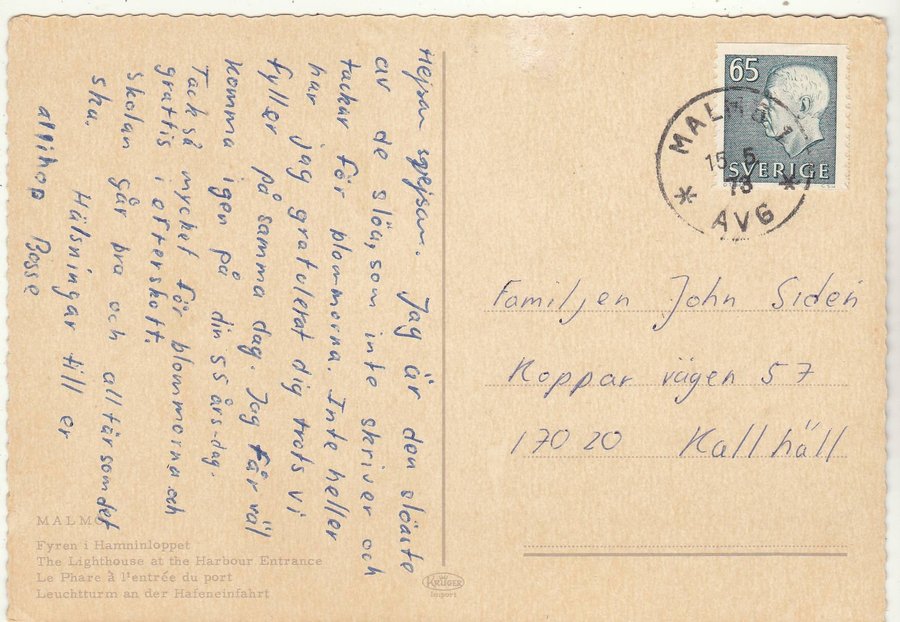 Hejsan svejsan. Jag är den slöaste
av de slöa, som inte skriver och
tackar för blommorna. Inte heller
har jag gratulerat dig trots vi
fyller på samma dag. Jag får väl
komma igen på din 55 års-dag.
Tack så mycket för blommorna och
grattis i efterskott.
Skolan går bra och allt är som det
ska.
Hälsningar till er
allihop Bosse
65
SVERIGE
MALMÖ 1
15 5
73
AVG
Familjen John Sidén
Koppar vägen 57
170 20 Kallhäll
MALMÖ
Fyren i Hamninloppet
The Lighthouse at the Harbour Entrance
Le Phare à l'entrée du port
Leuchtturm an der Hafeneinfahrt
KRÜGER
Import